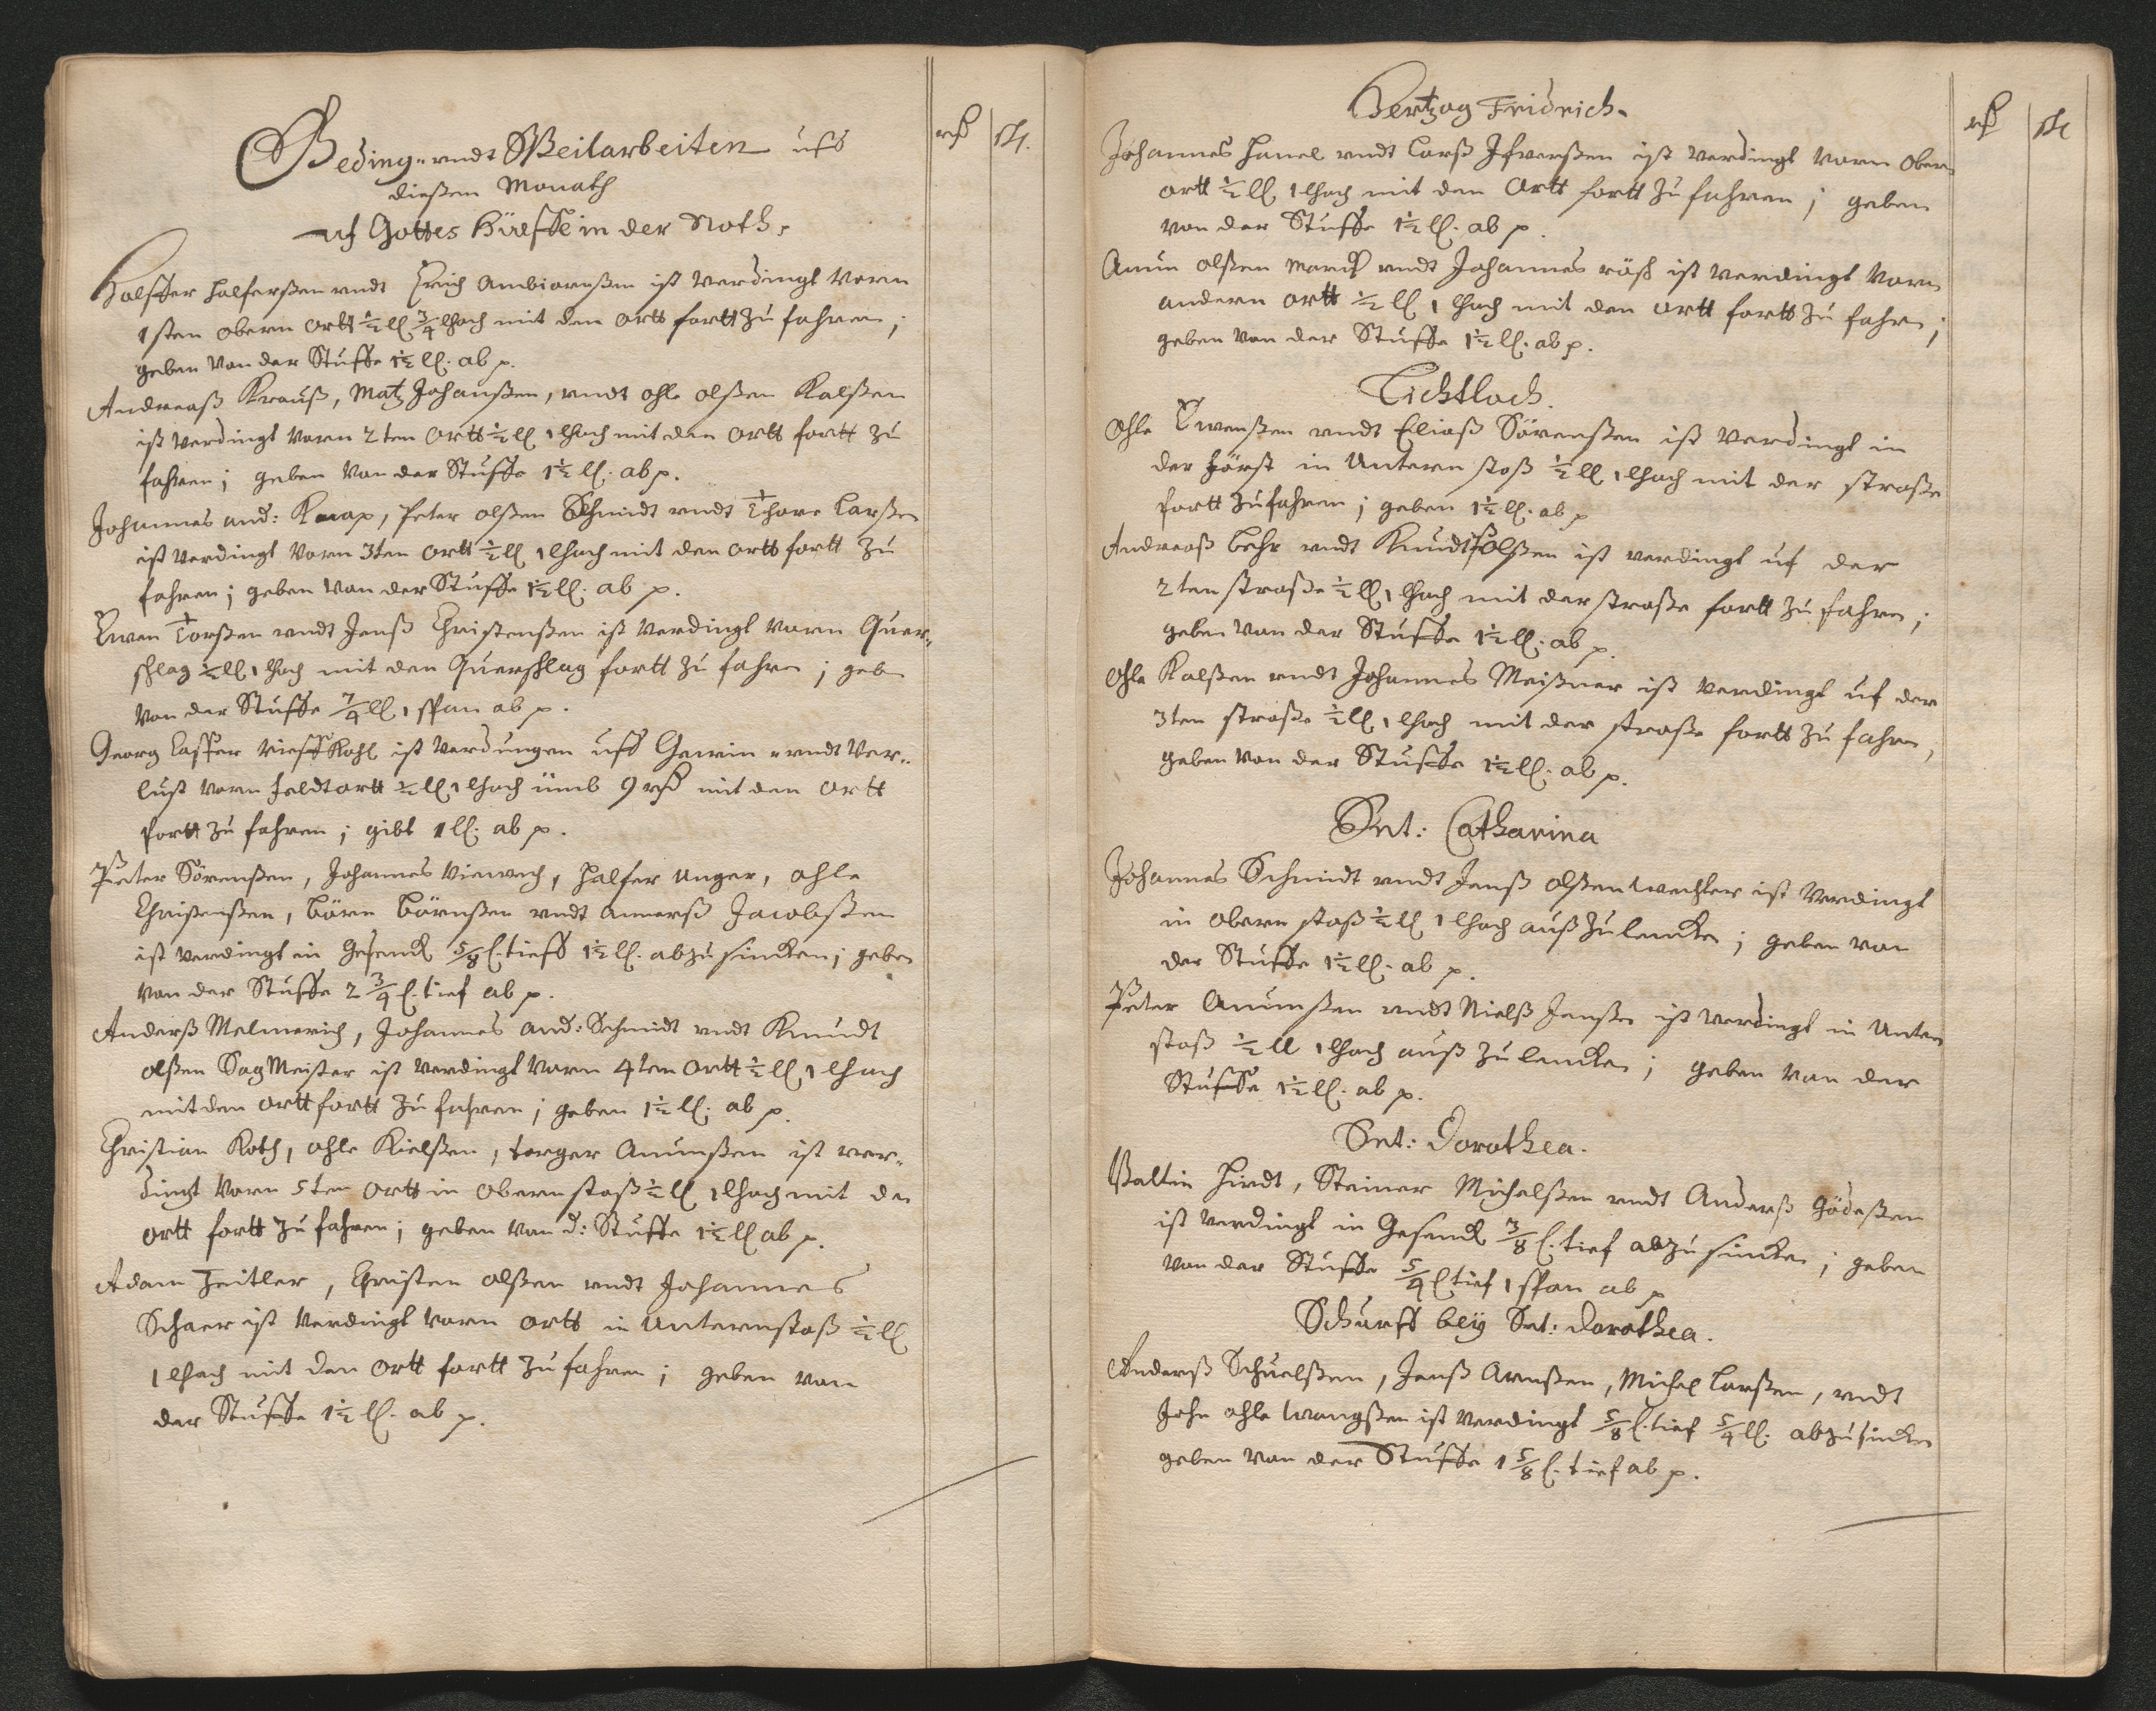 Beding- undt Weilarbeiten uff
dießem Monath
uf Gottes Hüelffe in der Noth.
rß ß.
Halffer Halferßen undt Erich Ambiornßen ist verdingt vorm
1sten obern ortt ½ ll ¾ lhoch mit den ortt fortt zu fahren;
geben von der Stuffe 1½ ll. ab p.
Andreaß Krauß, Matz Johanßen, undt ohle olßen Kalßen
ist verdingt vorm 2ten Ortt ½ ll 1 lhoch mit den ortt fortt zu
fahren; geben von der Stuffe 1½ ll. ab p.
Johannes and: Knap, Peter olßen Schmidt undt Thore Larßen
ist verdingt vorm 3ten ortt ½ ll 1 lhoch mit den ortt fortt zu
fahren; geben von der Stuffe 1½ ll. ab p.
Ewen Torßen undt Jenß Christenßen ist verdingt vorm Quer-
schlag ½ ll 1 lhoch mit den Querschlag fortt zu fahren; geben
von der Stuffe 7/4 ll 1 span ab p.
Georg Casper ist verdungen uff Gewin- undt Ver-
lust vorm feldtortt ½ ll 1 lhoch umb 9 rß mit den ortt
fortt zu fahren; gibt 1 ll. ab p.
Peter Sörenßen, Johannes Viewech, Halfer Unger, ohle
Christenßen, Börn Börnßen undt Amerß Jacobßen
ist verdingt in Gesenck 5/8 l. tieff 1½ ll. abzusincken; geben
von der Stuffe 2 ¾ l. tief ab p.
Anderß Melmerich, Johannes and: Schmidt undt Knundt
olßen SagMeister ist verdingt vorm 4ten Ortt ½ ll 1 lhoch
mit den ortt fortt zu fahren; geben 1½ ll. ab p.
Christian Koth, ohle Kielßen, Torger Amunßen ist ver-
dingt vorm 5ten Ortt in obern stoß ½ ll 1 lhoch mit den
ortt fortt zu fahren; geben von d: Stuffe 1½ ll ab p.
Adam Zeitler, Christen olßen undt Johannes
Schaer ist verdingt vorm ortt in Unternstoß ½ ll
1 lhoch mit den ortt fortt zu fahren; geben von
der Stuffe 1½ ll. ab p.
Hertzog Fridrich.
rß ß
Johannes Hanel undt Larß Ifwerßen ist verdingt vorm Obern
ortt ½ ll 1 lhoch mit den Ortt fortt zu fahren; geben
von der Stuffe 1½ ll. ab p.
Amun olßen undt Johannes röß ist verdingt vorm
andern ortt ½ ll 1 lhoch mit den ortt fortt zu fahren;
geben von der Stuffe 1½ ll. ab p.
Lichtloch.
Ohle Ewenßen undt Eliaß Sörenßen ist verdingt in
der först in Untern stoß ½ ll 1 lhoch mit der straße
fortt zu fahren; geben 1½ ll. ab p
Andreaß Behr undt Knudt olßen ist verdingt uf der
2ten straße ½ ll 1 lhoch mit der straße fortt zu fahren;
geben von der Stuffe 1½ ll. ab p.
Ohle Kalßen undt Johannes Meißner ist verdingt uf der
3ten straße ½ ll 1 lhoch mit der straße fortt zu fahren,
geben von der Stuffe 1½ ll. ab p.
Snt: Catharina
Johannes Schmidt undt Jenß olßen wechter ist verdingt
in obern stoß ½ ll 1 lhoch außzulencken; geben von
der Stuffe 1½ ll. ab p.
Peter Amunßen undt Nielß Jenßen ist verdingt in Untern
stoß ½ ll 1 lhoch außzulencken; geben von der
Stuffe 1½ ll. ab p.
Snt: Dorothea.
Valtin Hirdt, Steiner Michelßen undt Anderß Gödeßen
ist verdingt in Gesenck 3/8 l. tief abzusincken; geben
von der Stuffe 5/4 l tief 1 span ab p
Schurff bey Snt: Dorothea.
Anderß Schuelßen, Jenß Arnßen, Michel Larßen, undt
John ohle wangßen ist verdingt 5/8 l. tief 5/4 ll. abzusincken
geben von der Stuffe 1 5/8 l. tief ab p.